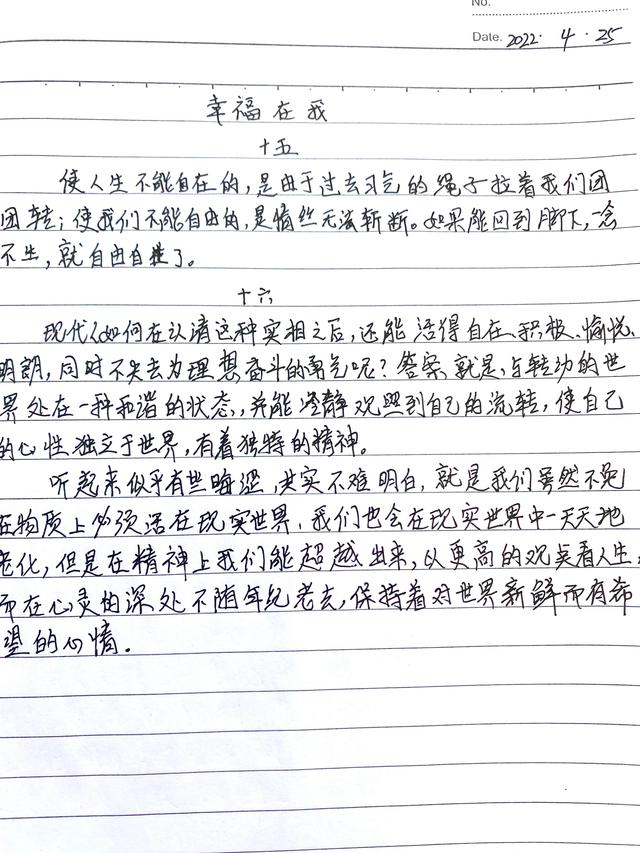 No.
Date. 2022. 4. 25
幸福在我
十五
使人生不能自在的，是由于过去习气的绳子拉着我们团
团转；使我们不能自由的，是情丝无法斩断。如果能回到脚下，一念
不生，就自由自在了。
十六
现代人如何在认清这种实相之后，还能活得自在、积极、愉悦、
明朗，同时不失去为理想奋斗的勇气呢？答案就是，与转动的世
界处在一种和谐的状态，并能冷静观照到自己的流转，使自己
的心性独立于世界，有着独特的精神。
听起来似乎有些晦涩，其实不难明白，就是我们虽然不免
在物质上必须活在现实世界，我们也会在现实世界中一天天地
老化，但是在精神上我们能超越出来，从更高的观点看人生，
而在心灵的深处不随年纪老去，保持着对世界新鲜而有希
望的心情。